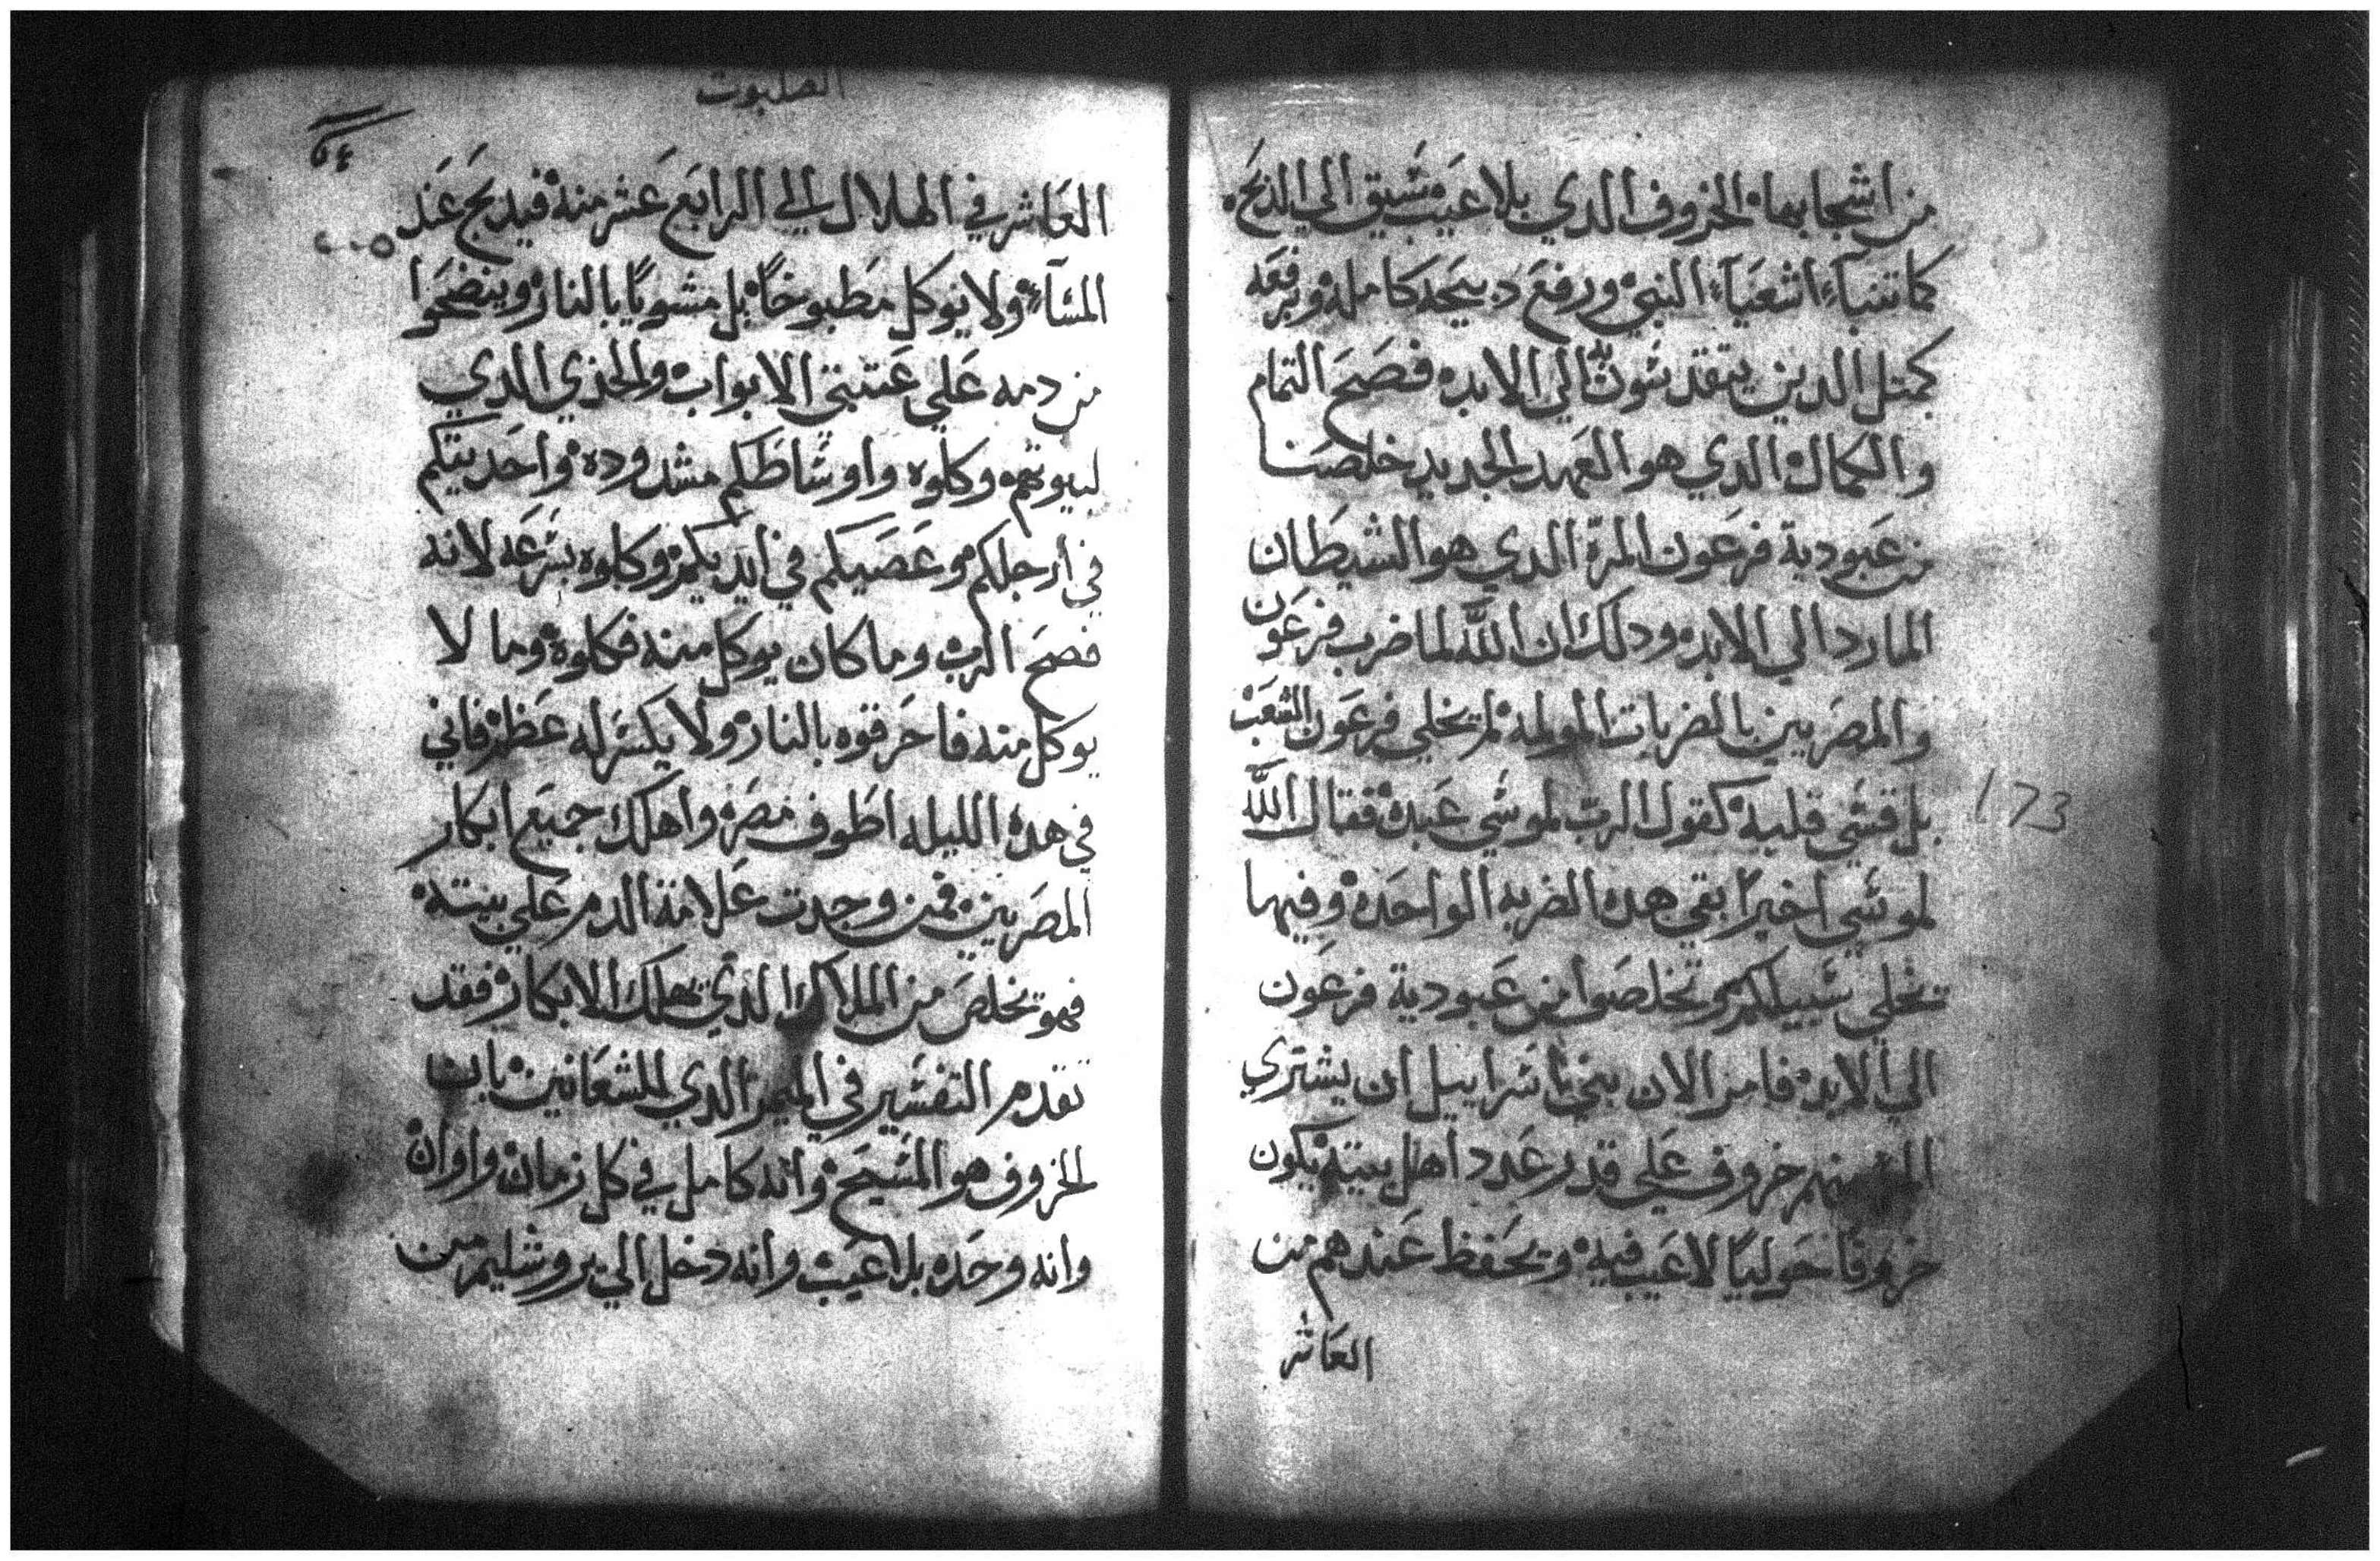 من اشجابها الخروف الدي بلا عيب سيق الي الدبح
كما تنبآء اشعيآء النبي ورفع دبيحه كامله وبرفعه
كمتل الدين يتقدسون الي الابد فصح التمام
والكمال الدي هو العهد الجديد خلصنا
من عبودية فرعون المرة الدي هو الشيطان
المارد الي الابد ودلك ان الله لما ضرب فرعون
والمصريين بالضربات المولمه لم يخلي فرعون الشعب
بل قسي قلبه كقول الرب لموسي عبده فقال الله
لموسي اخيرا بقي هده الضربه الواحده وفيها
تخلي سبيلكم وتخلصوا من عبودية فرعون
الي الابد فامر الان بني اسراييل ان يشتري
خروف علي قدر عدد اهل بيته يكون
خروفا حوليا لا عيب فيه ويحفظ عندهم من
العاشر
173
الصلبوت
العاشر في الهلال الي الرابع عشر منه فيدبح عند
المسآء ولا يوكل مطبوخا بل مشويا بالنار وينضحوا
من دمه علي عتبتي الابواب والخدي الدي
لبيوتهم وكلوه واوساطكم مشدوده واحديتكم
في ارجلكم وعصيكم في ايديكم وكلوه بسرعه لانه
فصح الرب وما كان يوكل منه فكلوه وما لا
يوكل منه فاحرقوه بالنار ولا يكسر له عظم فاني
في هده الليله اطوف مصر واهلك جميع ابكار
المصريين فمن وجدت علامة الدم علي بيته
فهو تخلص من الملاك الدي يهلك الابكار فقد
تقدم التفسير في الميمر الدي للشعانين بان
الخروف هو المسيح وانه كامل في كل زمان واوان
وانه وحده بلا عيب وانه دخل الي يروشليم من